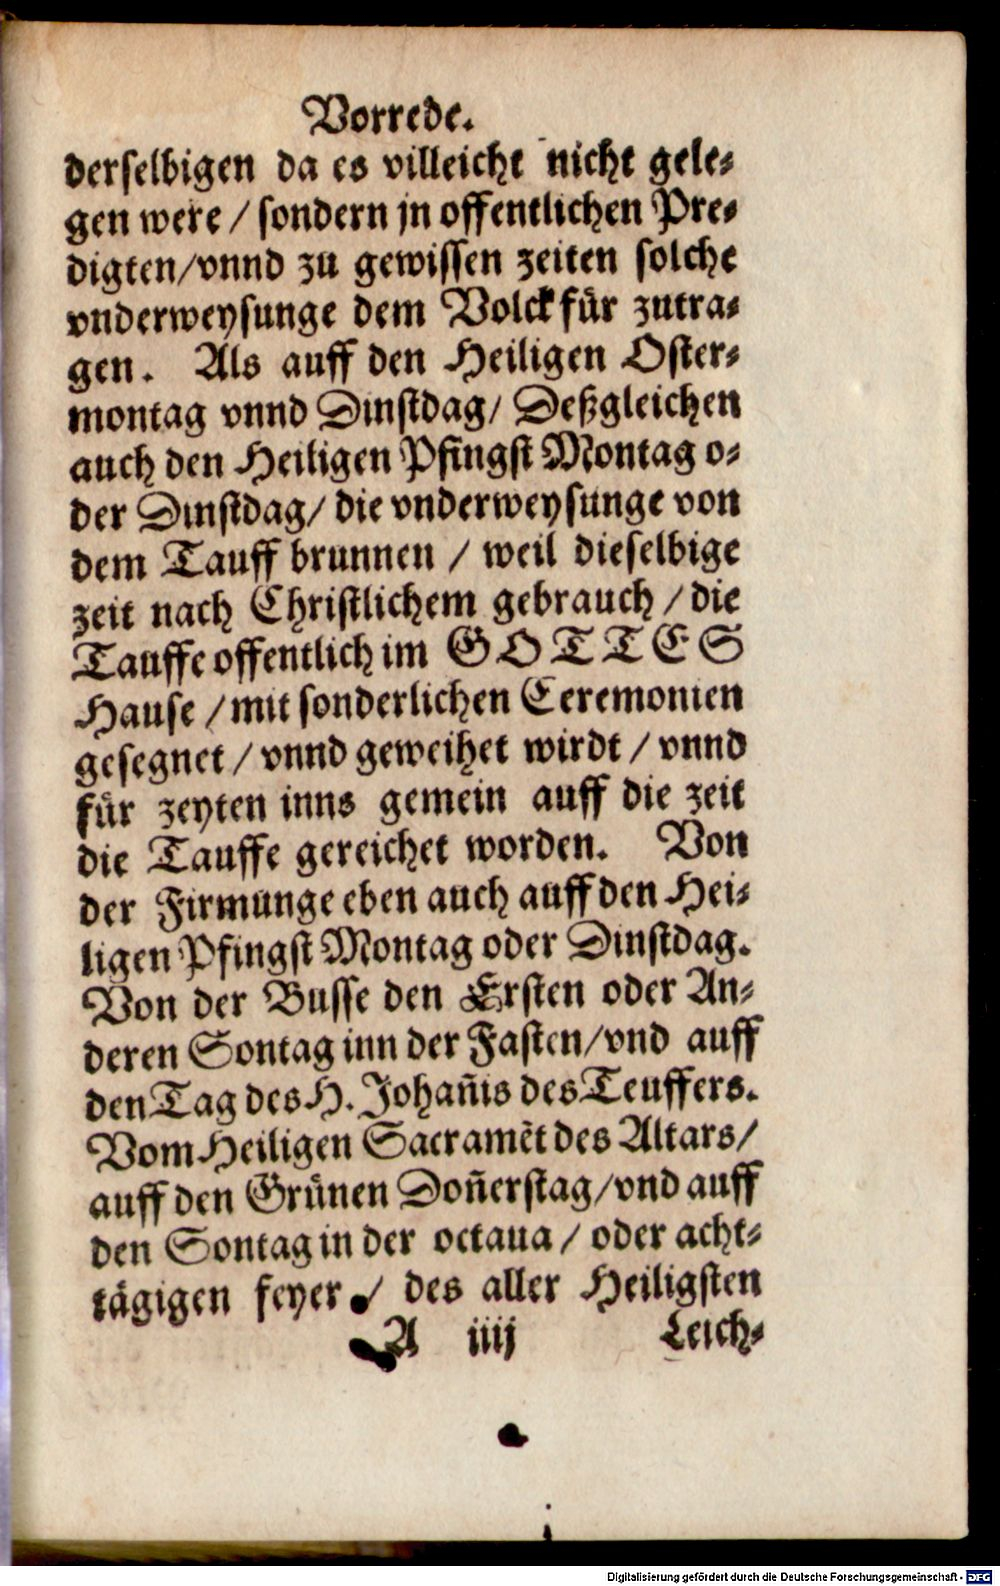 Vorrede.
derselbigen da es villeicht nicht gele⸗
gen were / sondern jn offentlichen Pre⸗
digten/vnnd zu gewissen zeiten solche
vnderweysunge dem Volck für zutra⸗
gen. Als auff den Heiligen Oster⸗
montag vnnd Dinstdag/ Deßgleichen
auch den Heiligen Pfingst Montag o⸗
der Dinstdag/ die vnderweysunge von
dem Tauff brunnen / weil dieselbige
zeit nach Christlichem gebrauch / die
Tauffe offentlich im GOTTES
Hause / mit sonderlichen Ceremonien
gesegnet / vnnd geweihet wirdt / vnnd
für zeyten inns gemein auff die zeit
die Tauffe gereichet worden. Von
der Firmunge eben auch auff den Hei⸗
ligen Pfingst Montag oder Dinstdag.
Von der Busse den Ersten oder An⸗
deren Sontag inn der Fasten/vnd auff
den Tag des H. Johañis des Teuffers.
Vom Heiligen Sacramẽt des Altars/
auff den Grünen Doñerstag/vnd auff
den Sontag in der octaua / oder acht⸗
tägigen feyer / des aller Heiligsten
A iiij Leich⸗
Digitalisierung gefördert durch die Deutsche Forschungsgemeinschaft - DFG